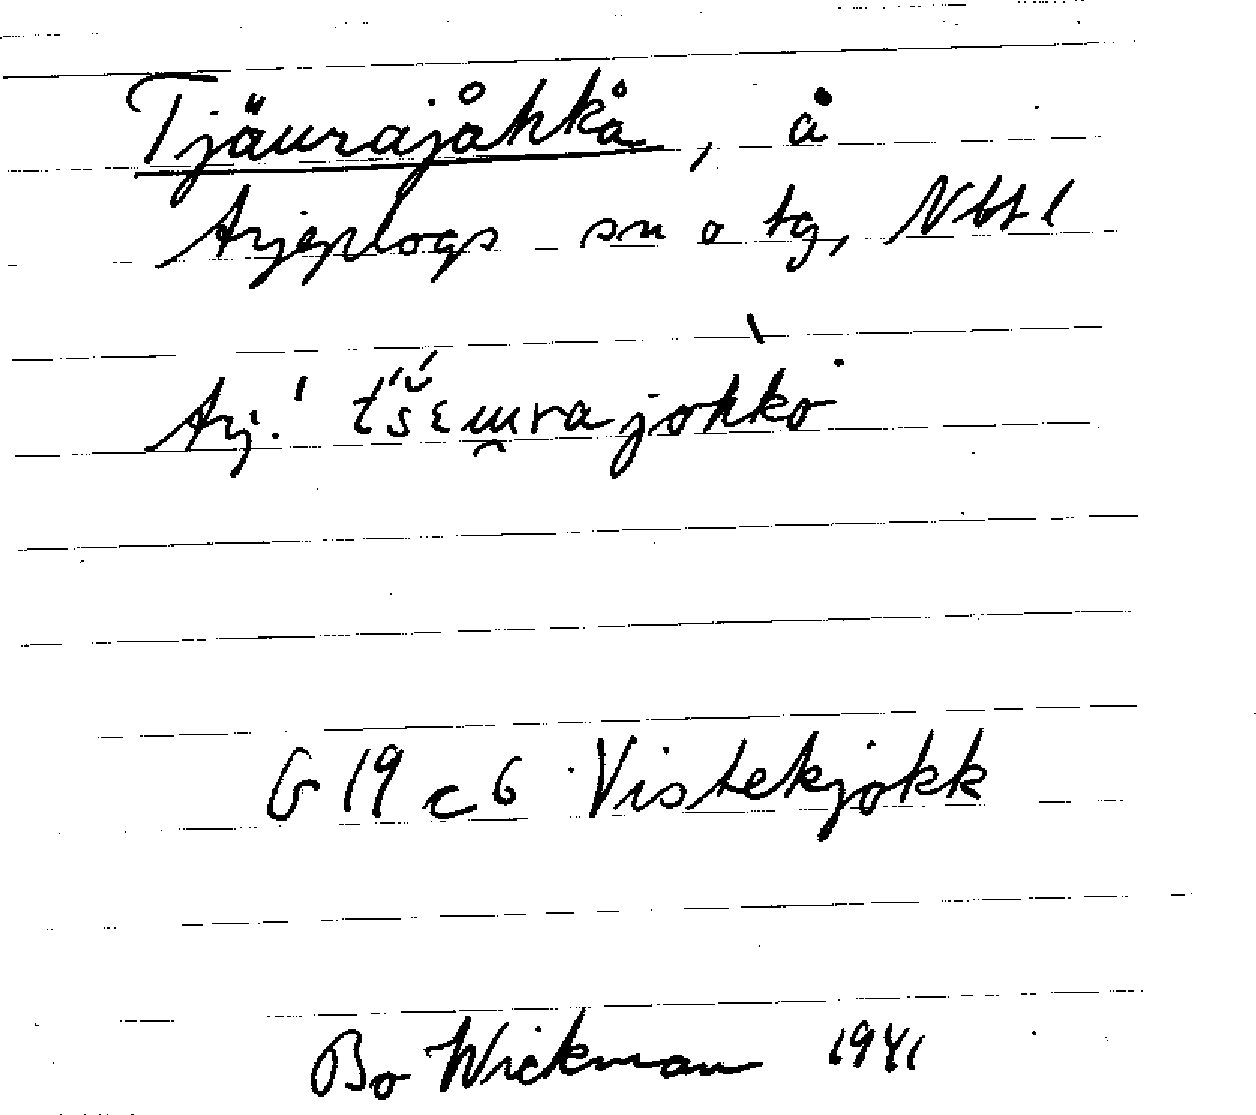 Tjäurajåhkå, å
Arjeplogs sn o tg, Nbtl
Arj.
G 19 c 6 Vistekjokk
Bo Wickman 1941